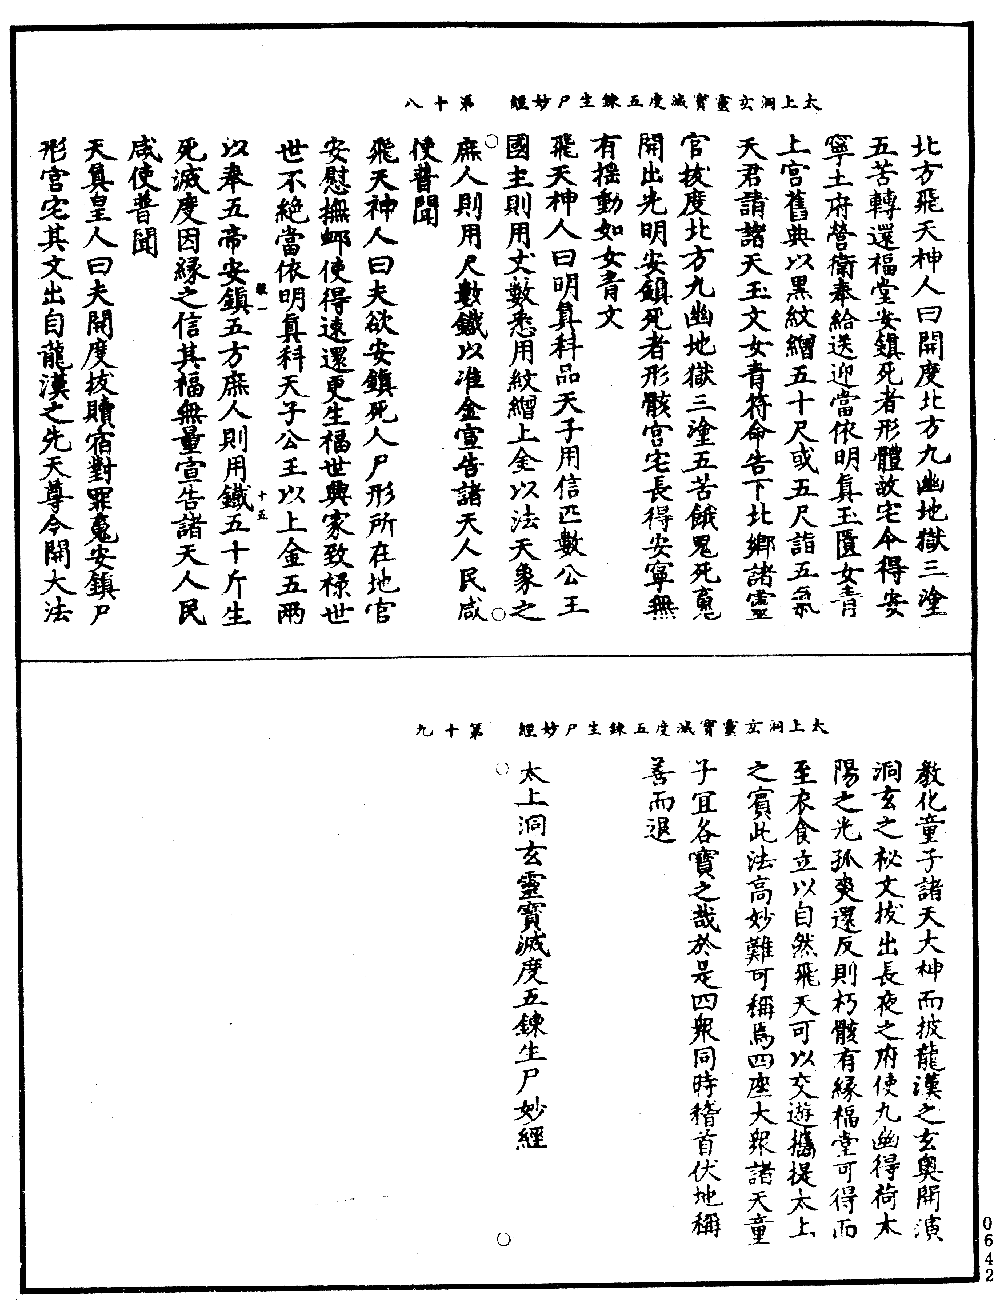 太上洞玄靈寶滅度五鍊生尸妙經　第十八
北方飛天神人曰開度北方九幽地獄三塗
五苦轉還福堂安鎮死者形體故宅令得安
寧土府營衛奉給送迎當依明真玉匱女青
上宮舊典以黑紋繒五十尺或五尺詣五氣
天君請諸天玉文女青符命告下北鄉諸靈
官拔度北方九幽地獄三塗五苦餓鬼死魂
開出光明安鎮死者形骸宮宅長得安寧無
有搖動如女青文
飛天神人曰明真科品天子用信匹數公王
國主則用丈數悉用紋繒上金以法天象之
庶人則用尺數鐵以准金宣告諸天人民咸
使普聞
飛天神人曰夫欲安鎮死人尸形所在地官
安慰撫卹使得速還更生福世興家致祿世
世不絶當依明真科天子公王以上金五兩
以奉五帝安鎮五方庶人則用鐵五十斤生
死滅度因緣之信其福無量宣告諸天人民
咸使普聞
天真皇人曰夫開度拔贖宿對罪魂安鎮尸
形宮宅其文出自龍漢之先天尊今開大法
十五
太上洞玄靈寶滅度五鍊生尸妙經　第十九
教化童子諸天大神而披龍漢之玄奧開演
洞玄之秘文拔出長夜之府使九幽得荷太
陽之光孤爽還反則朽骸有緣福堂可得而
至衣食立以自然飛天可以交遊攜提太上
之賓此法高妙難可稱焉四座大眾諸天童
子宜各寶之哉於是四眾同時稽首伏地稱
善而退
太上洞玄靈寶滅度五鍊生尸妙經
0642